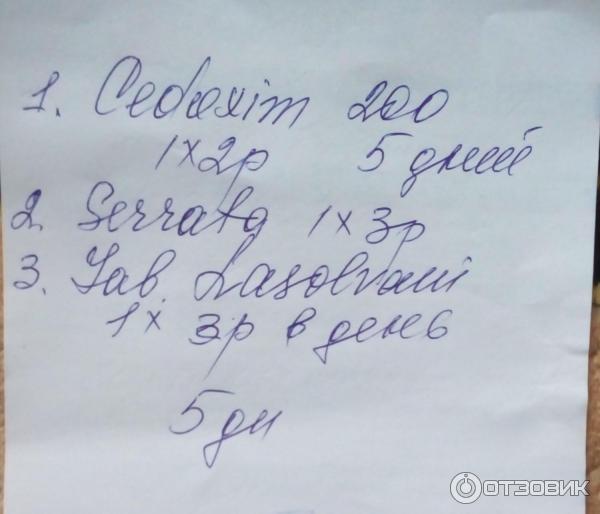 1. Cedoxim 200
1 x 2р 5 дней
2. Serrata 1 x 3р
3. Tab. Lasolvani
1 x 3р в день
5 дн
ОТЗОВИК